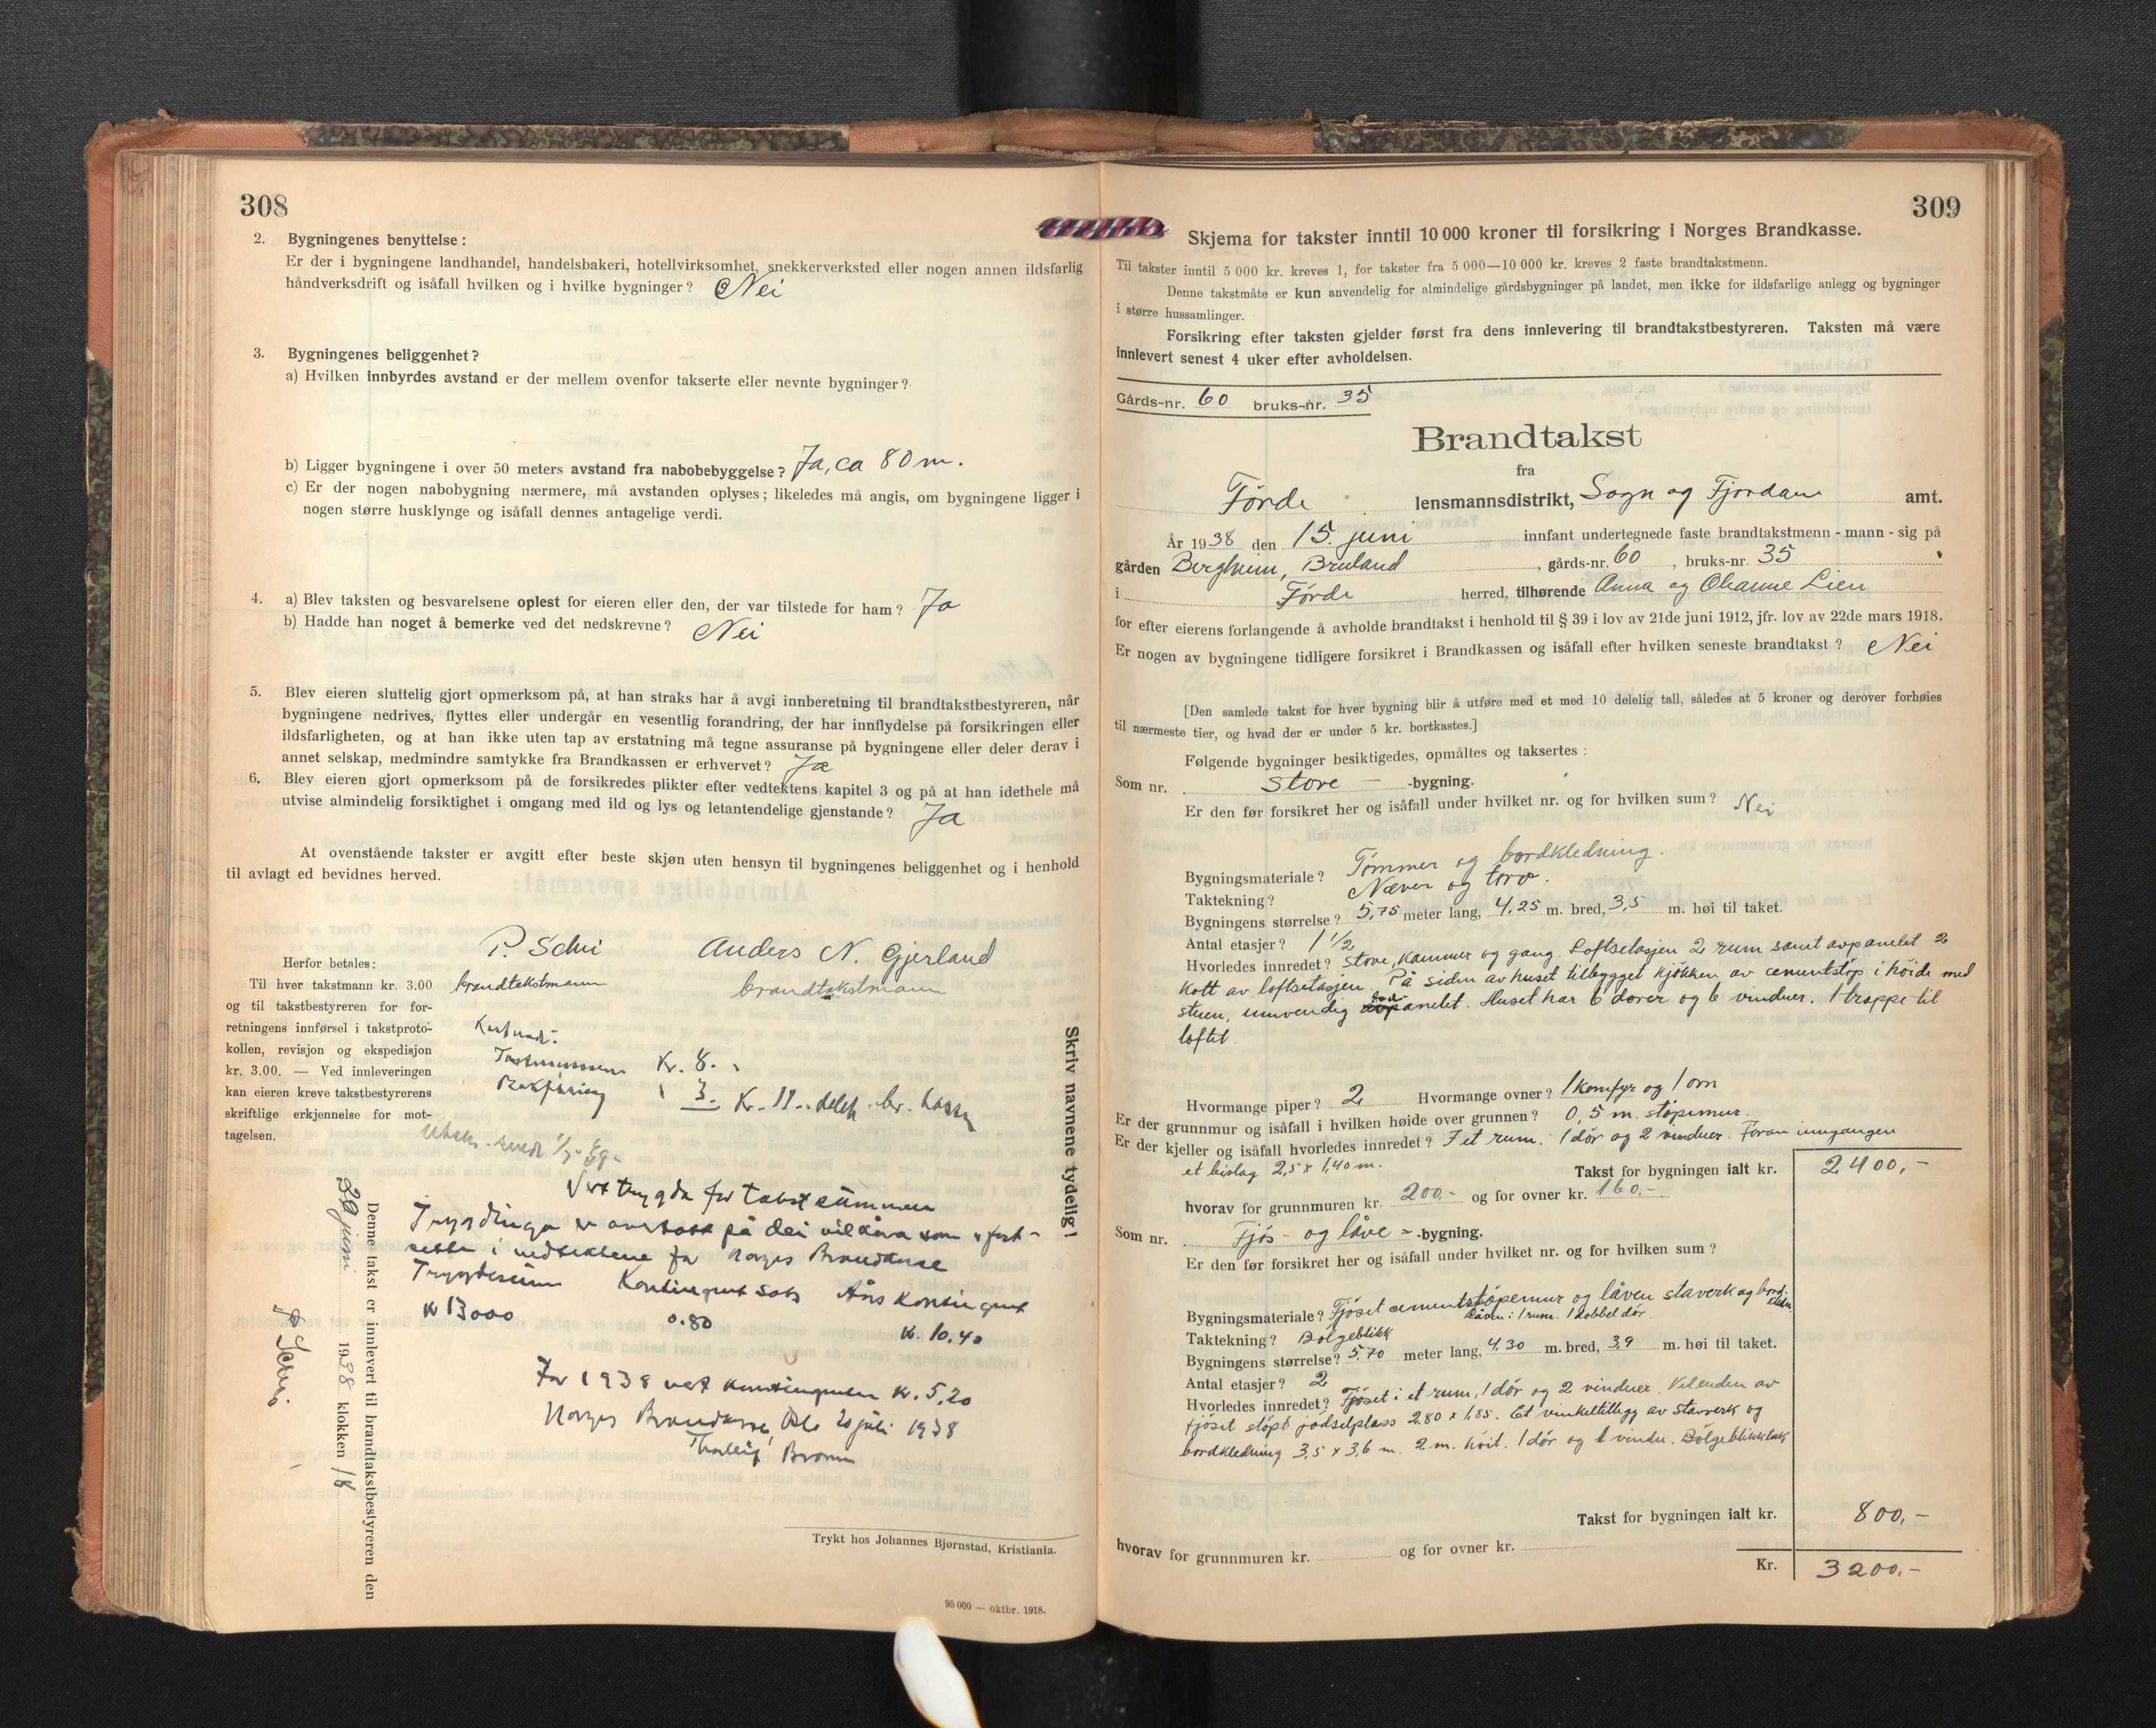 308
2. Bygningenes benyttelse:
Er der i bygningene landhandel, handelsbakeri, hotellvirksomhet, snekkerverksted eller nogen annen ildsfarlig
håndverksdrift og isåfall hvilken og i hvilke bygninger? Nei
3. Bygningenes beliggenhet?
a) Hvilken innbyrdes avstand er der mellem ovenfor takserte eller nevnte bygninger?
b) Ligger bygningene i over 50 meters avstand fra nabobebyggelse? Ja, ca 80 m.
c) Er der nogen nabobygning nærmere, må avstanden oplyses; likeledes må angis, om bygningene ligger i
nogen større husklynge og isåfall dennes antagelige verdi.
4. a) Blev taksten og besvarelsene oplest for eieren eller den, der var tilstede for ham? Ja
b) Hadde han noget å bemerke ved det nedskrevne? Nei
5. Blev eieren sluttelig gjort opmerksom på, at han straks har å avgi innberetning til brandtakstbestyreren, når
bygningene nedrives, flyttes eller undergår en vesentlig forandring, der har innflydelse på forsikringen eller
ildsfarligheten, og at han ikke uten tap av erstatning må tegne assuranse på bygningene eller deler derav i
annet selskap, medmindre samtykke fra Brandkassen er erhvervet? Ja
6. Blev eieren gjort opmerksom på de forsikredes plikter efter vedtektens kapitel 3 og på at han idethele må
utvise almindelig forsiktighet i omgang med ild og lys og letantendelige gjenstande? Ja
At ovenstående takster er avgitt efter beste skjøn uten hensyn til bygningenes beliggenhet og i henhold
til avlagt ed bevidnes herved.
P. Schei Anders N. Gjerland
brandtakstmann brandtakstmann
Herfor betales:
Til hver takstmann kr. 3.00
og til takstbestyreren for for-
retningens innførsel i takstproto-
kollen, revisjon og ekspedisjon
kr. 3.00. — Ved innleveringen
kan eieren kreve takstbestyrerens
skriftlige erkjennelse for mot-
tagelsen.
Kostnad:
Kr. 8.
3. Kr. 11.
Vert trygda for takstsummen
Trygdinga er overteke på dei vilkåra som er fast-
sette i vedtektene for Norges Brandkasse
Trygdesum Kontingent sats Års kontingent
Kr 13000 0.80 Kr. 10.40
For 1938 vert kontingenten kr. 5,20
Norges Brandkasse, Oslo 20 juli 1938
Skriv navnene tydelig!
Denne takst er innlevert til brandtakstbestyreren den
juni 1938 klokken 18
Trykt hos Johannes Bjørnstad, Kristiania.
95 000 — oktbr. 1918.
309
Skjema for takster inntil 10 000 kroner til forsikring i Norges Brandkasse.
Til takster inntil 5 000 kr. kreves 1, for takster fra 5 000—10 000 kr. kreves 2 faste brandtakstmenn.
Denne takstmåte er kun anvendelig for almindelige gårdsbygninger på landet, men ikke for ildsfarlige anlegg og bygninger
i større hussamlinger.
Forsikring efter taksten gjelder først fra dens innlevering til brandtakstbestyreren. Taksten må være
innlevert senest 4 uker efter avholdelsen.
Gårds-nr. 60 bruks-nr. 35
Brandtakst
fra
Førde lensmannsdistrikt, Sogn og Fjordane amt.
År 1938 den 15. juni innfant undertegnede faste brandtakstmenn - mann - sig på
gården Bergheim, Bruland, gårds-nr. 60, bruks-nr. 35
i Førde herred, tilhørende Anna og Ohanne Lien
for efter eierens forlangende å avholde brandtakst i henhold til § 39 i lov av 21de juni 1912, jfr. lov av 22de mars 1918.
Er nogen av bygningene tidligere forsikret i Brandkassen og isåfall efter hvilken seneste brandtakst? Nei
[Den samlede takst for hver bygning blir å utføre med et med 10 delelig tall, således at 5 kroner og derover forhøies
til nærmeste tier, og hvad der er under 5 kr. bortkastes.]
Følgende bygninger besiktigedes, opmåltes og taksertes:
Som nr. Stove - -bygning.
Er den før forsikret her og isåfall under hvilket nr. og for hvilken sum? Nei
Bygningsmateriale? Tømmer og bordkledning.
Taktekning? Næver og torv.
Bygningens størrelse? 5,75 meter lang, 4,25 m. bred, 3,5 m. høi til taket.
Antal etasjer? 1 1/2
Hvorledes innredet? Stove, kammer og gang. Loftsetasjen 2 rum samt avpanelet 2
kott av loftsetasjen. På siden av huset tilbygget kjøkken av cementstøp i høide med
stuen, innvendig panelt. Huset har 6 dører og 6 vinduer. 1 trappe til
loftet.
Hvormange piper? 2 Hvormange ovner? 1 komfyr og 1 ovn
Er der grunnmur og isåfall i hvilken høide over grunnen? 0,5 m. støpemur.
Er der kjeller og isåfall hvorledes innredet? I et rum. 1 dør og 2 vinduer. Foran inngangen
et bislag 2,5 x 1,40 m. Takst for bygningen ialt kr. 2400,-
hvorav for grunnmuren kr. 200,- og for ovner kr. 160,-
Som nr. Fjøs- og låve - -bygning.
Er den før forsikret her og isåfall under hvilket nr. og for hvilken sum?
Bygningsmateriale? Fjøset cementstøpemur og låven staverk og bord-
kledn. Låven: 1 rum. 1 dobbel dør.
Taktekning? Bølgeblikk
Bygningens størrelse? 5,70 meter lang, 4,30 m. bred, 3,9 m. høi til taket.
Antal etasjer? 2
Hvorledes innredet? Fjøset i et rum, 1 dør og 2 vinduer. Ved enden av
fjøset støpt gjødselplass 2,80 x 1,85. Et vinkeltillegg av staverk og
bordkledning 3,5 x 3,6 m. 2 m. høit. 1 dør og 1 vindu. Bølgeblikktak
Takst for bygningen ialt kr. 800,-
hvorav for grunnmuren kr. og for ovner kr.
Kr. 3200,-